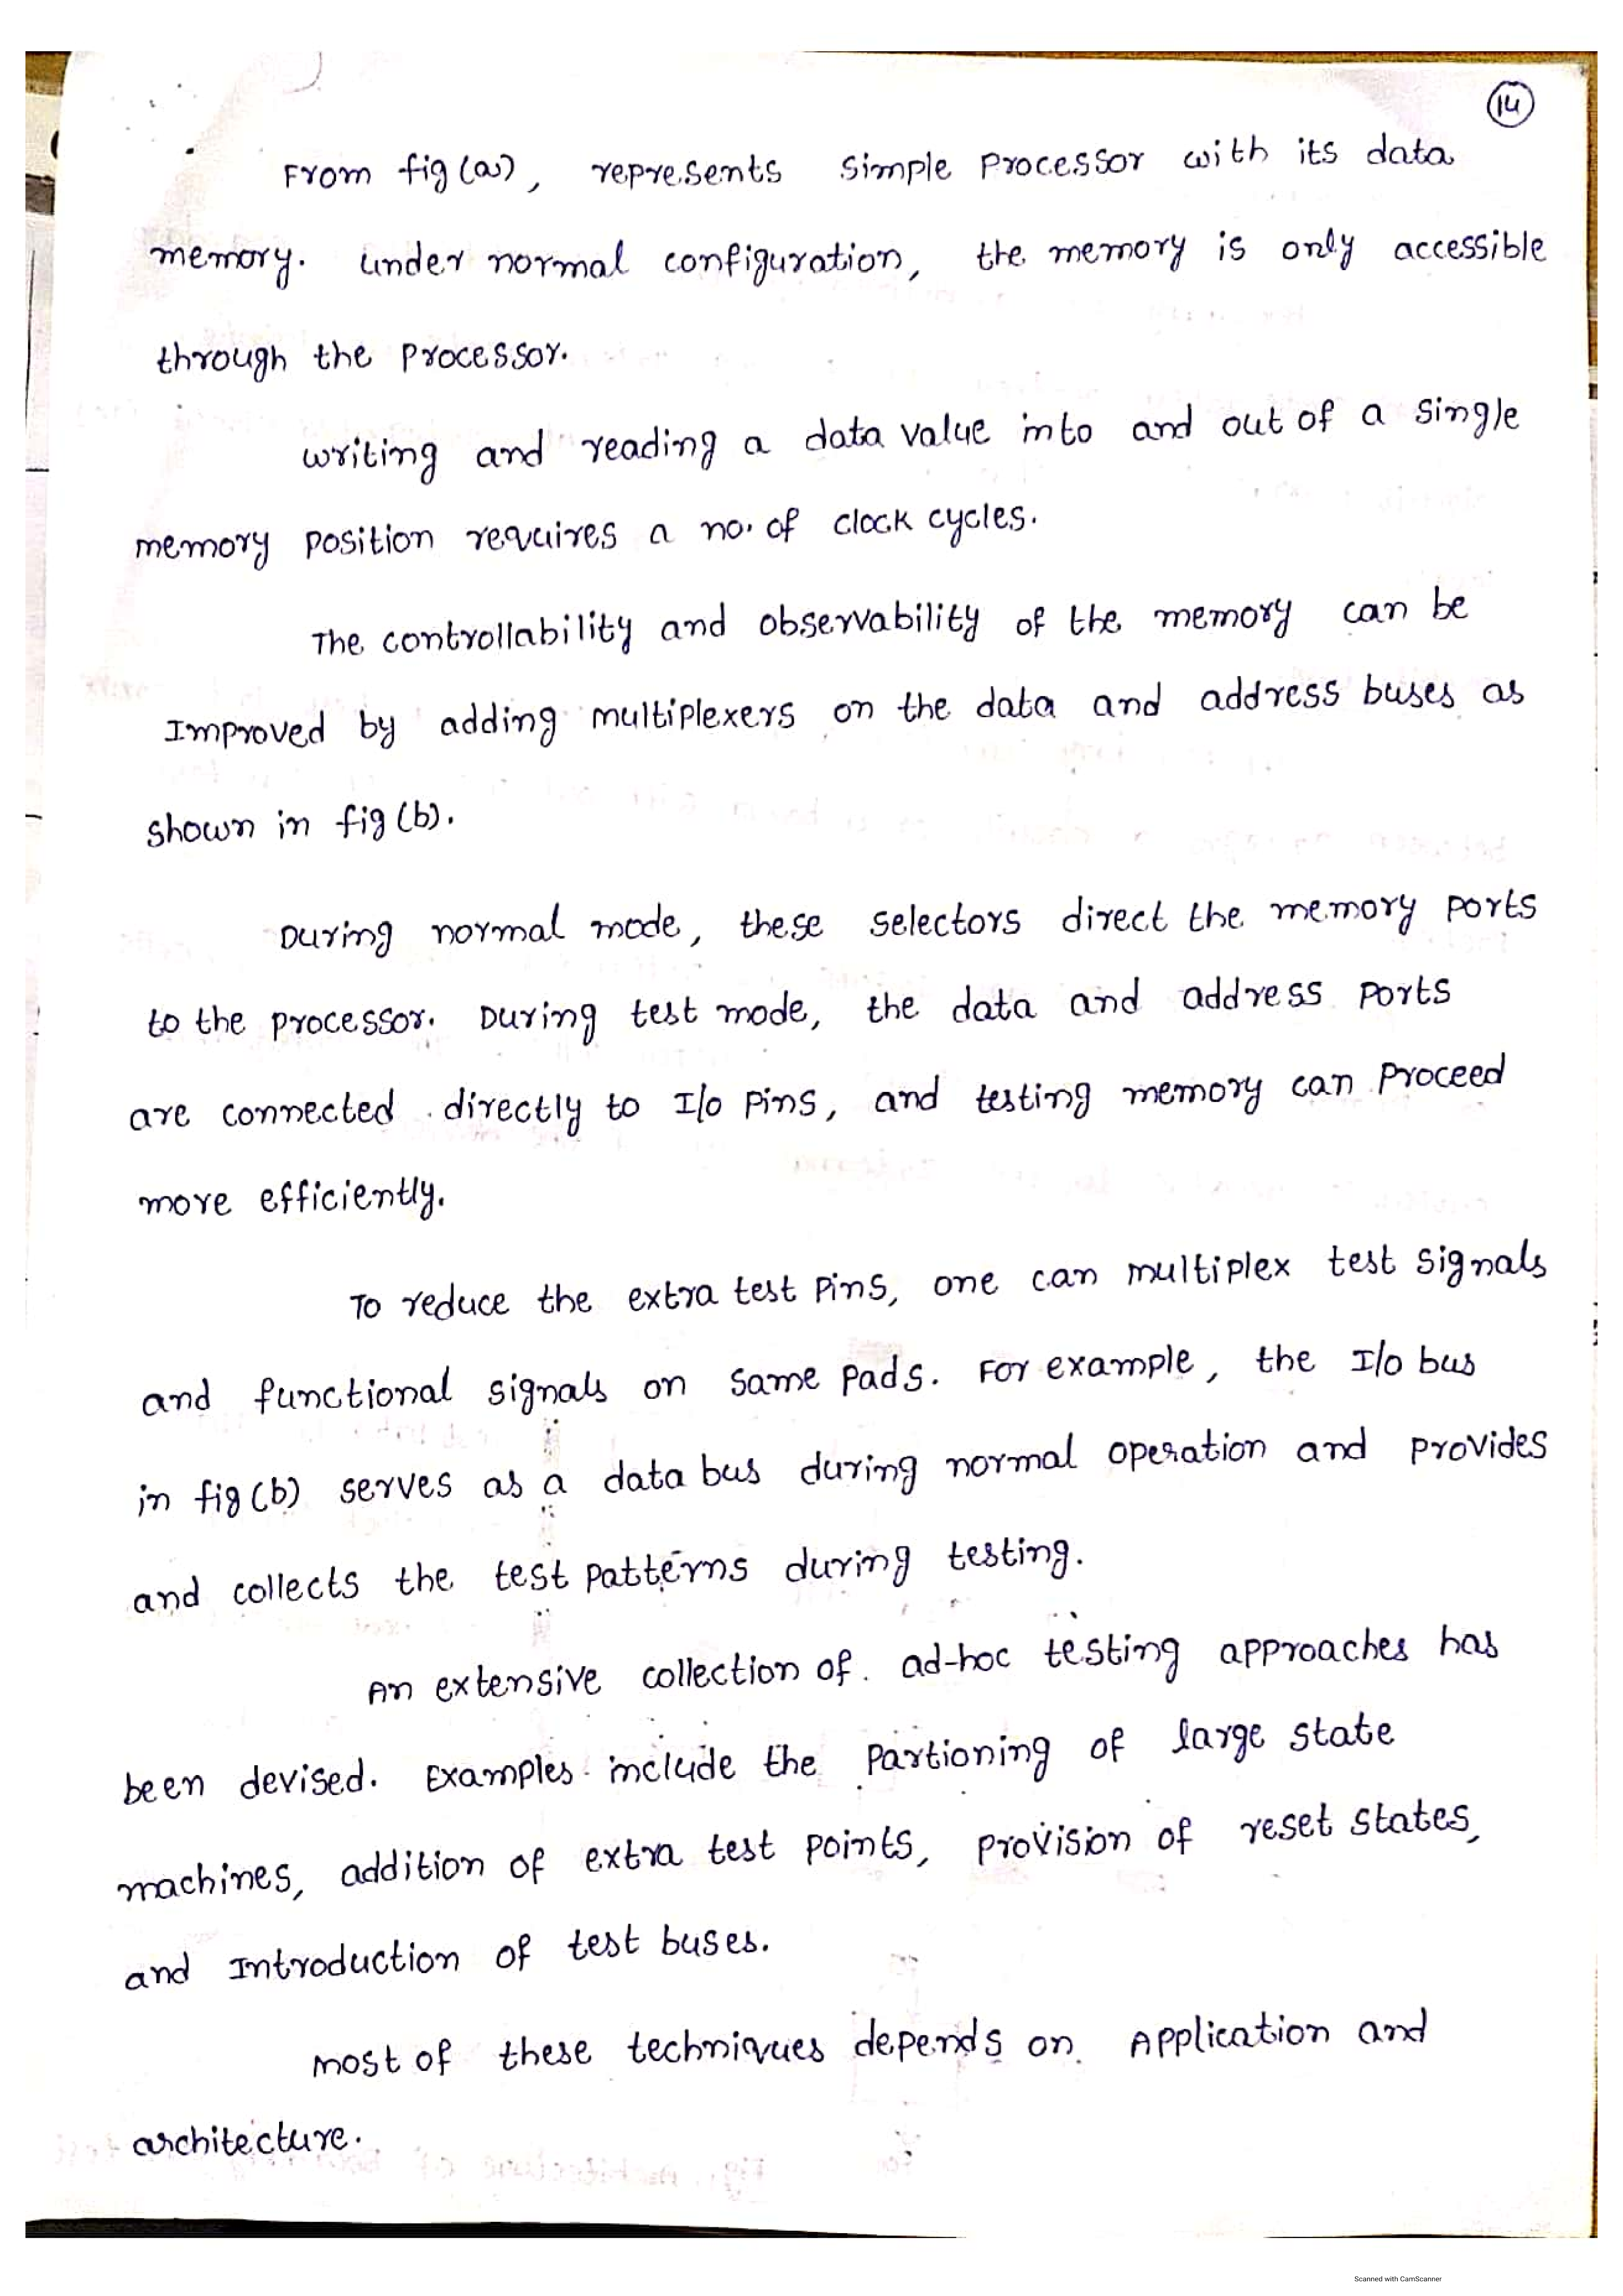 14
From fig (a), represents simple processor with its data
memory. Under normal configuration, the memory is only accessible
through the processor.
writing and reading a data value into and out of a single
memory position requires a no. of clock cycles.
The controllability and observability of the memory can be
Improved by adding multiplexers on the data and address buses as
shown in fig (b).
During normal mode, these selectors direct the memory ports
to the processor. During test mode, the data and address ports
are connected directly to I/o pins, and testing memory can proceed
more efficiently.
To reduce the extra test pins, one can multiplex test signals
and functional signals on same pads. For example, the I/o bus
in fig (b) serves as a data bus during normal operation and provides
and collects the test patterns during testing.
An extensive collection of ad-hoc testing approaches has
been devised. Examples include the Partioning of large state
machines, addition of extra test points, provision of reset states,
and Introduction of test buses.
most of these techniques depends on Application and
architecture.
Scanned with CamScanner